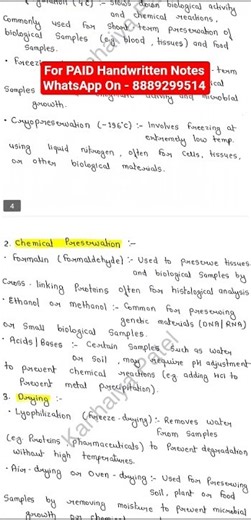 (4°C) :- slows down biological activity
and chemical reactions,
commonly used for short term preservation of
biological samples (e.g. blood, tissues) and food
samples.
For PAID Handwritten Notes
WhatsApp On - 8889299514
• Freezi
- term
Samples
activity and microbial
growth.
• Cryopreservation (-196°C) :- Involves freezing at
extremely low temp.
using liquid nitrogen, often for cells, tissues,
or other biological materials.
4
2. Chemical Preservation :-
• Formalin (Formaldehyde) :- Used to preserve tissues
and biological samples by
cross-linking proteins often for histological analysis
• Ethanol or methanol :- Common for preserving
genetic materials (DNA/RNA)
or small biological samples.
• Acids/Bases :- Certain samples, such as water
or soil, may require pH adjustment
to prevent chemical reactions (eg adding HCl to
prevent metal precipitation).
3. Drying :-
• Lyophilization (freeze-drying) :- Removes water
from samples
(eg. Proteins, pharmaceuticals) to prevent degradation
without high temperatures.
• Air-drying or Oven-drying :- Used for preserving
Soil, plant or food
Samples by removing moisture to prevent microbial
growth or chemical